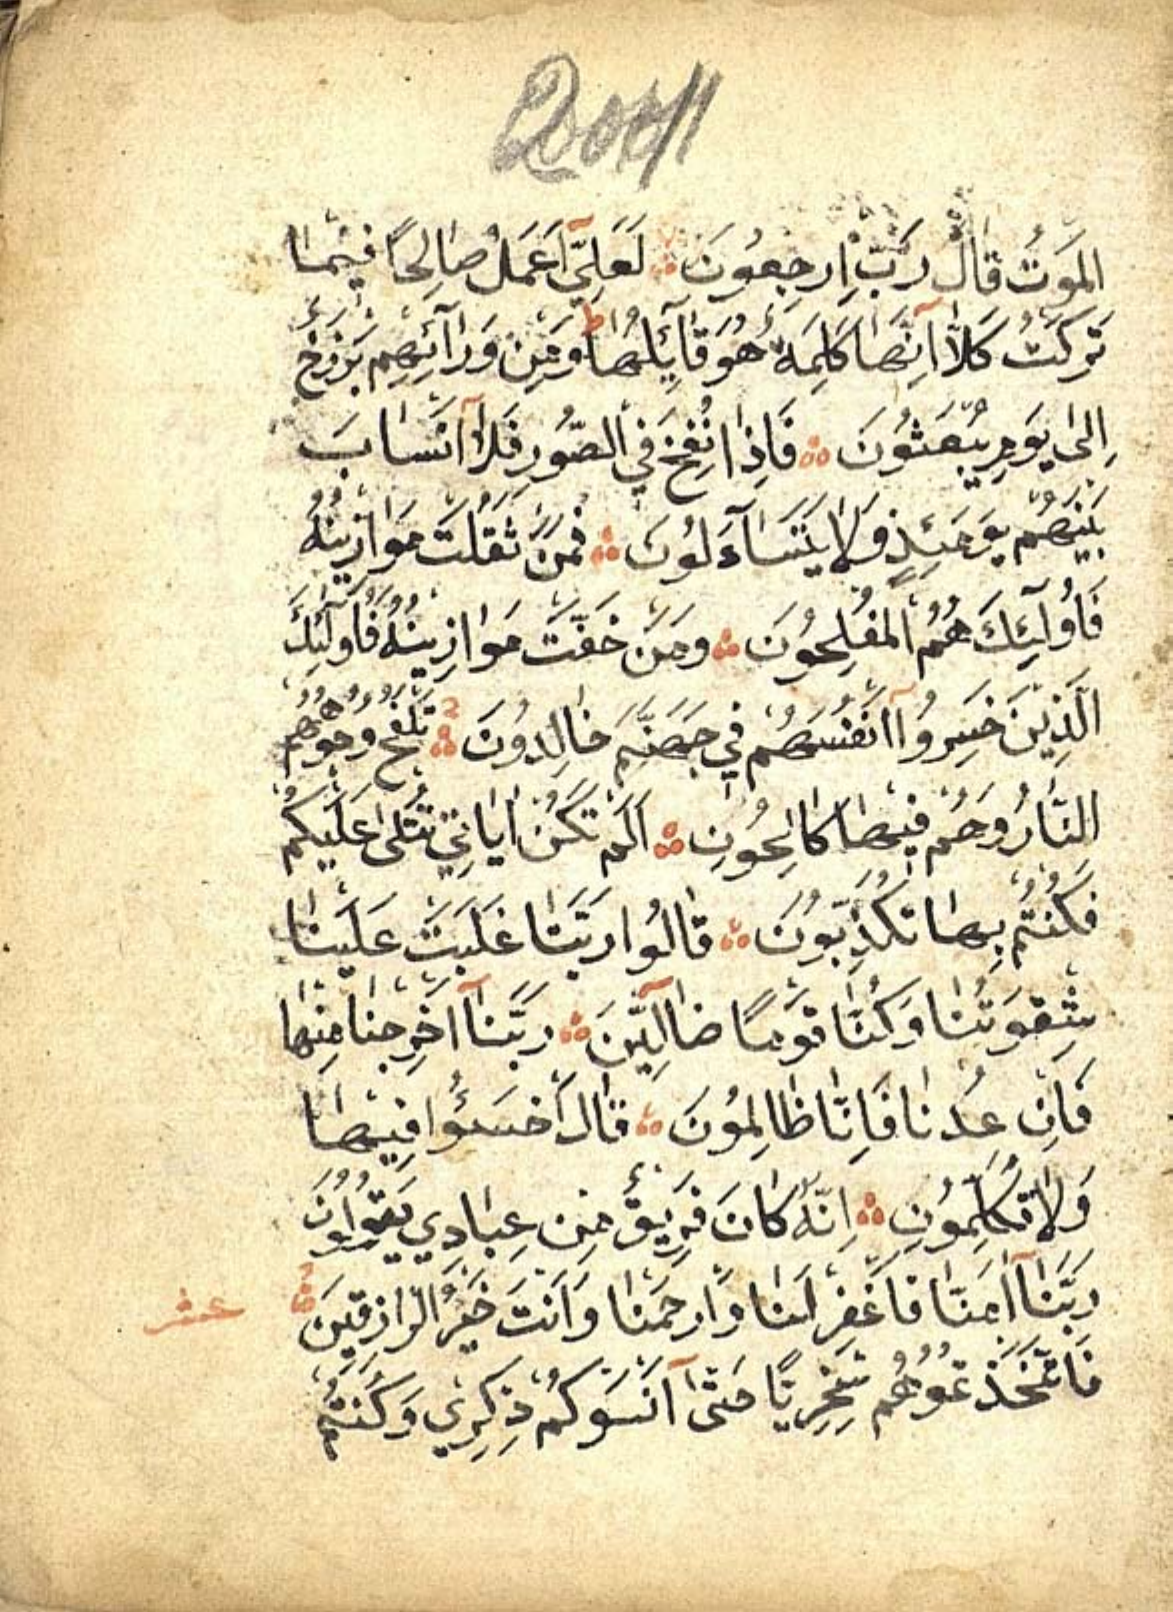 المَوتُ قَالَ رَبِّ اِرجِعُونَ لَعَلِّيٓ اَعمَلُ صَالِحًا فِيمَا
تَرَكتُ كَلَّا اِنَّهَا كَلِمَةٌ هُوَ قَآئِلُهَا ط وَمِن وَرَآئِهِم بَرزَخٌ
اِلٰى يَومِ يُبعَثُونَ فَاِذَا نُفِخَ فِي الصُّورِ فَلَآ اَنسَابَ
بَينَهُم يَومَئِذٍ وَلَا يَتَسَآءَلُونَ فَمَن ثَقُلَت مَوَازِينُهُ
فَاُولٰٓئِكَ هُمُ المُفلِحُونَ وَمَن خَفَّت مَوَازِينُهُ فَاُولٰٓئِكَ
الَّذِينَ خَسِرُوآ اَنفُسَهُم فِي جَهَنَّمَ خَالِدُونَ تَلفَحُ وُجُوهَهُم
النَّارُ وَهُم فِيهَا كَالِحُونَ اَلَم تَكُن اٰيَاتِي تُتلٰى عَلَيكُم
فَكُنتُم بِهَا تُكَذِّبُونَ قَالُوا رَبَّنَا غَلَبَت عَلَينَا
شِقوَتُنَا وَكُنَّا قَومًا ضَآلِّينَ رَبَّنَآ اَخرِجنَا مِنهَا
فَاِن عُدنَا فَاِنَّا ظَالِمُونَ قَالَ اخسَئُوا فِيهَا
وَلَا تُكَلِّمُونِ اِنَّهُ كَانَ فَرِيقٌ مِن عِبَادِي يَقُولُونَ
رَبَّنَآ اٰمَنَّا فَاغفِر لَنَا وَارحَمنَا وَاَنتَ خَيرُ الرَّازِقِينَ
عشر
فَاتَّخَذتُمُوهُم سِخرِيًّا حَتّٰىٓ اَنسَوكُم ذِكرِي وَكُنتُم